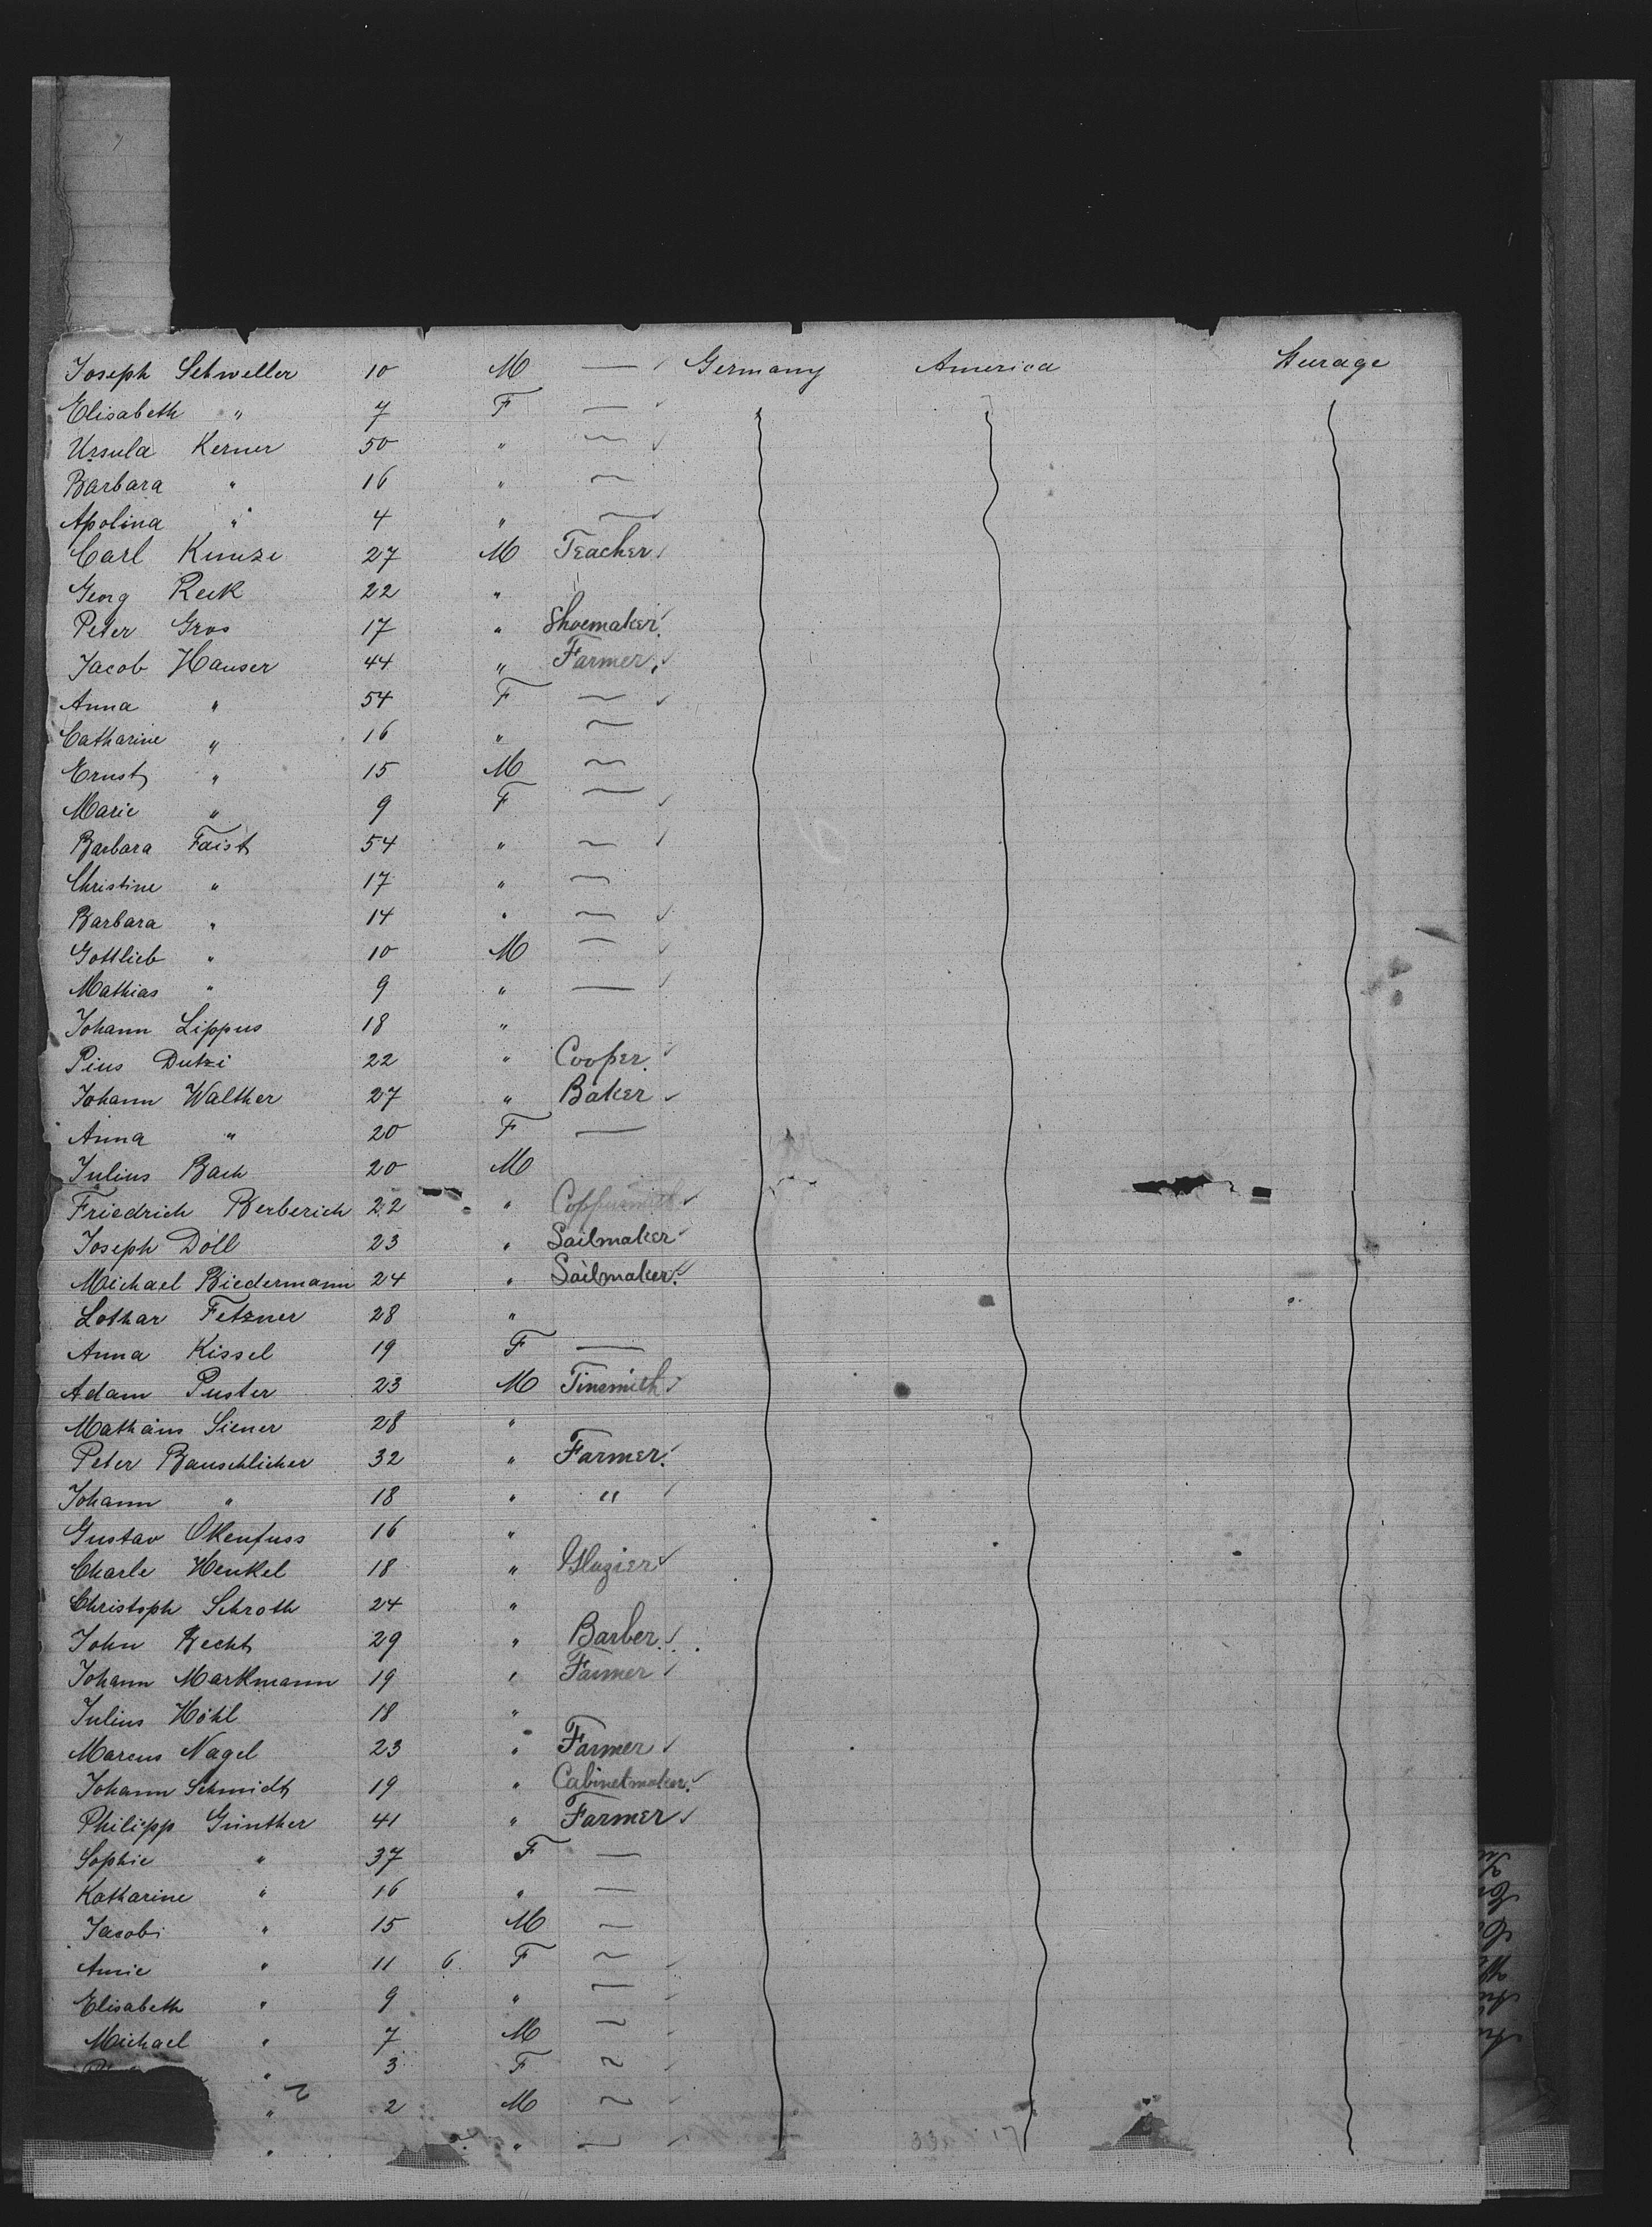 Joseph Schweller 10 M — Germany America Steerage
Elisabeth " 7 F —
Ursula Kerner 50 " —
Barbara " 16 " —
Apolina " 4 " —
Carl Kunze 27 M Teacher
Georg Reek 22 "
Peter Gros 17 " Shoemaker.
Jacob Hauser 44 " Farmer.
Anna " 54 F —
Catharine " 16 " —
Ernst " 15 M —
Marie " 9 F —
Barbara Faist 54 " —
Christine " 17 " —
Barbara " 14 " —
Gottlieb " 10 M —
Mathias " 9 " —
Johann Lippus 18 "
Pius Dutzi 22 " Cooper.
Johann Walther 27 " Baker
Anna " 20 F —
Julius Bach 20 M
Friedrich Berberich 22 " Coppersmith
Joseph Döll 23 " Sailmaker
Michael Biedermann 24 " Sailmaker.
Lothar Fetzner 28 "
Anna Kissel 19 F —
Adam Puster 23 M Tinsmith
Mathäus Siener 28 "
Peter Bauschlicher 32 " Farmer.
Johann " 18 " "
Gustav Okenfuss 16 "
Charle Henkel 18 " Glazier
Christoph Schroth 24 "
John Becht 29 " Barber.
Johann Markmann 19 " Farmer
Julius Höhl 18 "
Marcus Nagel 23 " Farmer
Johann Schmidt 19 " Cabinetmaker.
Philipp Günther 41 " Farmer
Sophie " 37 F —
Katharine " 16 " —
Jacobi " 15 M —
Annie " 11 6 F —
Elisabeth " 9 " —
Michael " 7 M —
" 3 F —
" 2 M —
" " —